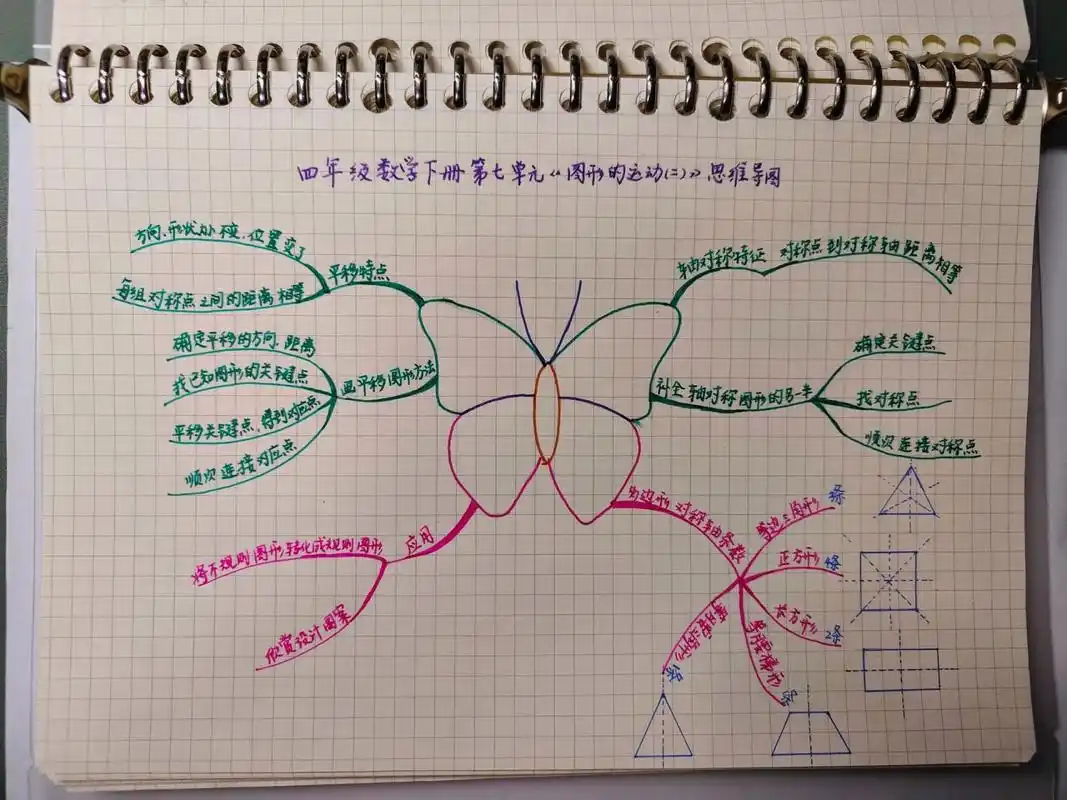 四年级数学下册第七单元《图形的运动(二)》思维导图
平移特点
方向、形状大小不变,位置变了
每组对称点之间的距离相等
画平移图形方法
确定平移的方向、距离
找已知图形的关键点
平移关键点,得到对应点
顺次连接对应点
轴对称特征
对称点到对称轴距离相等
补全轴对称图形的另一半
确定关键点
找对称点
顺次连接对称点
应用
将不规则图形转化成规则图形
欣赏设计图案
多边形对称轴条数
等边三角形 3条
正方形 4条
长方形 2条
等腰梯形
等腰三角形